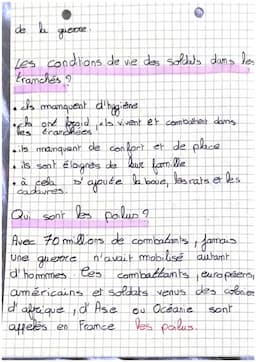 de la guerre.
Les condtions de vie des soldats dans les
tranchés ?
• ils manquent d'hygiène
• ils ont froid, ils vivent et combattent dans
les tranchées.
• ils manquent de confort et de place
• ils sont éloignés de leur famille
• à cela s'ajoute la boue, les rats et les
cadavres.
Qui sont les poilus ?
Avec 70 millions de combatants, jamais
une guerre n'avait mobilisé autant
d'hommes. Ces combattants, européens,
américains et soldats venus des colonies
d'afrique, d'Asie ou Océanie sont
appelés en France les poilus.